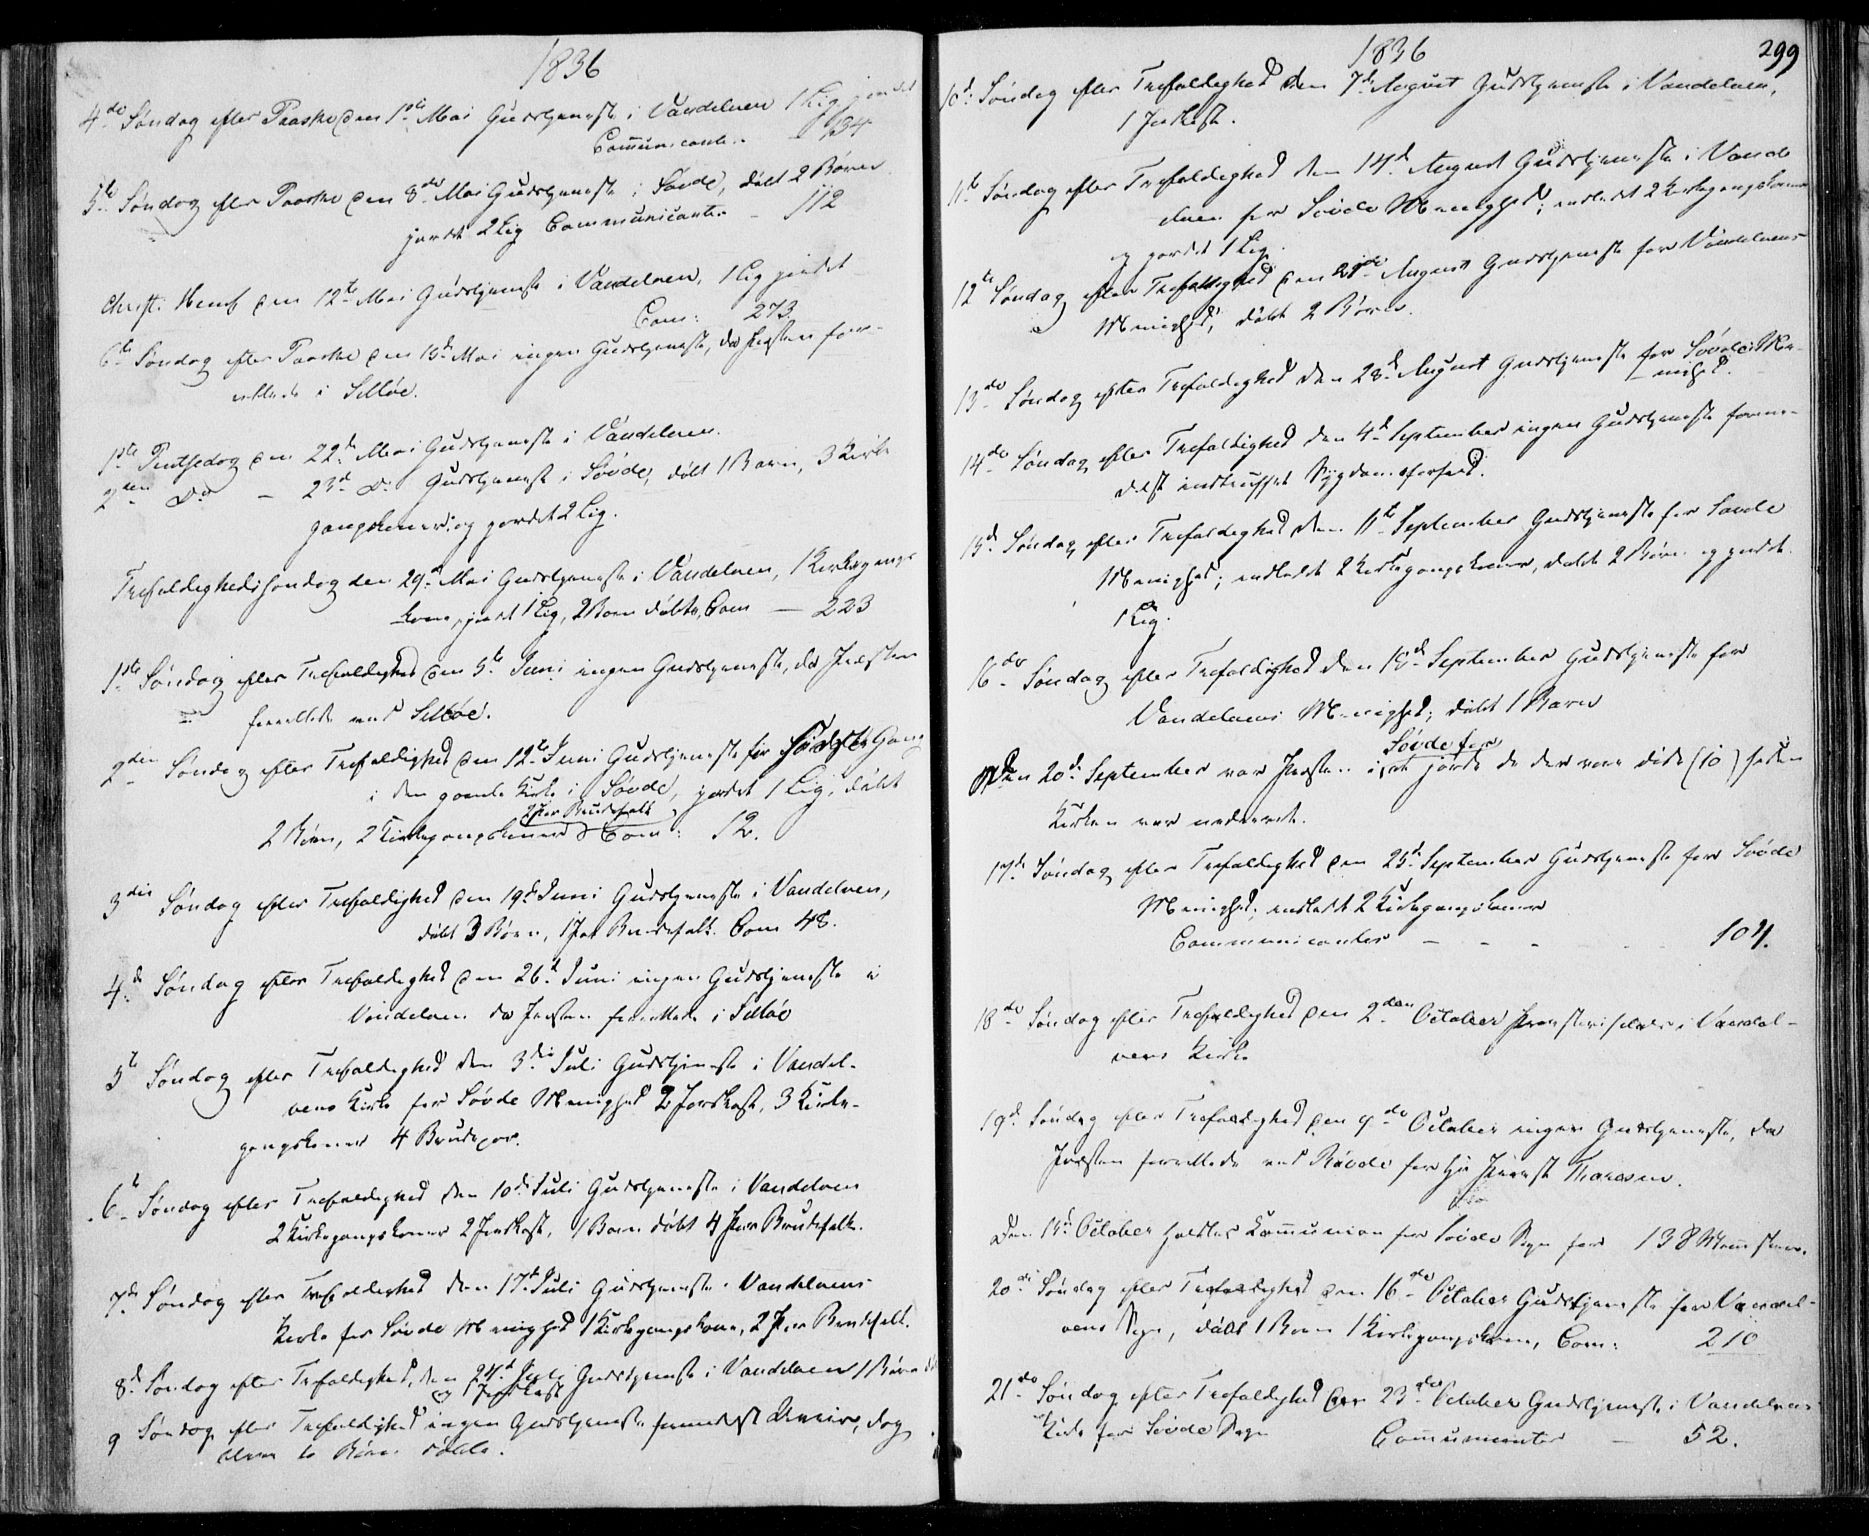 1836
4de Søndag efter Paaske den 1ste Mai Gudstjeneste i Vandelven 1 Lig jordet
Communicanter 134
5te Søndag efter Paaske den 8de Mai Gudstjeneste i Søvde, døbt 2 Børn
jordet 2 Lig Communicanter – 112
Christi Himf den 12te Mai Gudstjeneste i Vandelven, 1 Lig jordet
Com: 273.
6te Søndag efter Paaske den 15de Mai ingen Gudstjeneste, da Præsten for-
rettede i Silloe.
1ste Pintsedag den 22de Mai Gudstjeneste i Vandelven.
2den Do – 23de Do Gudstjeneste i Søvde, døbt 1 Barn, 3 Kirke
gangskoner og jordet 2 Lig.
Trefoldighedssøndag den 29de Mai Gudstjeneste i Vandelven, 1 Kirkegangs
kone, jordet 1 Lig, 2 Børn døbte, Com – 223
1ste Søndag efter Trefoldighed den 5te Juni ingen Gudstjeneste, da Præsten
forrettede ved Silloe.
2den Søndag efter Trefoldighed den 12te Juni Gudstjeneste for sidste Gang
i den gamle Kirke i Søvde, jordet 1 Lig, døbt
2 Par Brudefolk
2 Børn, 2 Kirkegangskoner Com: 12.
3die Søndag efter Trefoldighed den 19de Juni Gudstjeneste i Vandelven,
døbt 3 Børn, 1 Par Brudefolk. Com 48.
4de Søndag efter Trefoldighed den 26de Juni ingen Gudstjeneste i
Vandelven da Præsten forrettede i Silloe
5te Søndag efter Trefoldighed den 3die Juli Gudstjeneste i Vandel-
vens Kirke for Søvde Menighed 2 Jordkast, 3 Kirke-
gangskoner 4 Brudepar.
6te Søndag efter Trefoldighed den 10de Juli Gudstjeneste i Vandelven
2 Kirkegangskoner 2 Jordkast, 1 Barn døbt 4 Par Brudefolk.
7de Søndag efter Trefoldighed den 17de Juli Gudstjeneste i Vandelvens
Kirke for Søvde Menighed 1 Kirkegangskone, 2 Par Brudefolk.
8de Søndag efter Trefoldighed, den 24de Juli Gudstjeneste i Vandelven 1 Barn
og 1 Jordkast
9 Søndag efter Trefoldighed ingen Gudstjeneste formedelst Uveir, dog
bleve to Børn døbte.
1836
299
10de Søndag efter Trefoldighed den 7de August Gudstjeneste i Vandelven,
1 Jordkast.
11te Søndag efter Trefoldighed den 14de August Gudstjeneste i Vand
elven for Søvde Menighed; indledet 2 Kirkegangskoner
og jordet 1 Lig.
12te Søndag efter Trefoldighed den 21de August Gudstjeneste for Vandelvens
Menighed, døbt 2 Børn.
13de Søndag efter Trefoldighed den 28de August Gudstjeneste for Søvde Me-
nighed.
14de Søndag efter Trefoldighed den 4de September ingen Gudstjeneste forme-
delst indtruffet Sygdomsforfald.
15de Søndag efter Trefoldighed den 11te September Gudstjeneste for Søvde
Menighed; indledet 2 Kirkegangskoner, døbt 2 Børn og jordet
1 Lig.
16de Søndag efter Trefoldighed den 18de September Gudstjeneste for
Vandelvens Menighed; døbt 1 Barn
Søvde for
Den 20de September var Præsten i at jorde de der vare døde (10) siden
Kirken var nedrevet.
17de Søndag efter Trefoldighed den 25de September Gudstjeneste for Søvde
Menighed; indledet 2 Kirkegangskoner
Communicanter – – – 104.
18de Søndag efter Trefoldighed den 2den October i Vandel-
vens Kirke
19de Søndag efter Trefoldighed den 9de October ingen Gudstjeneste, da
Præsten forrettede ved Røvde for Hr Provst Thoresen.
Den October holdtes Communion for Søvde Sogn for 138 Mennesker.
20de Søndag efter Trefoldighed den 16de October Gudstjeneste for Vandel-
vens Sogn, døbt 1 Barn 1 Kirkegangskone, Com: 210
21de Søndag efter Trefoldighed den 23de October Gudstjeneste i Vandelvens
Kirke for Søvde Sogn Communicanter – 52.